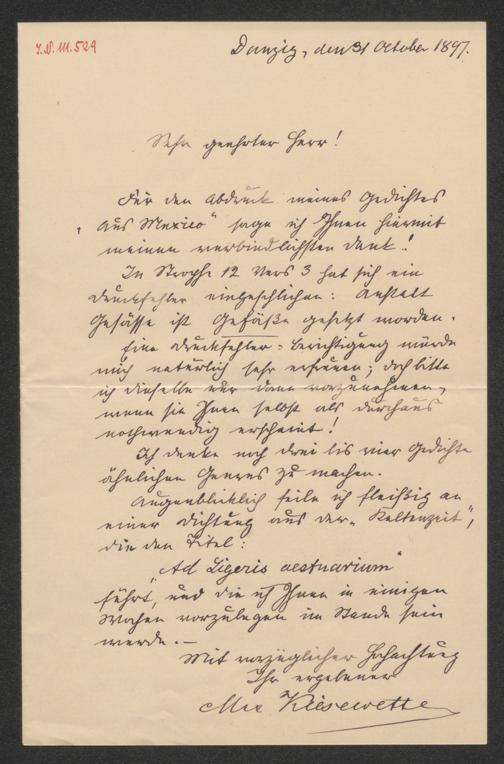 I.N. 111.529
Danzig, den 31 October 1897.
Sehr geehrter Herr!
Für den Abdruck meines Gedichtes
„Aus Mexico" sage ich Ihnen hiermit
meinen verbindlichsten Dank!
In Strophe 12 Vers 3 hat sich ein
Druckfehler eingeschlichen: Anstatt
Gefässe ist Gefäße gesetzt worden.
Eine Druckfehler-Berichtigung würde
mich natürlich sehr erfreuen; doch bitte
ich dieselbe nur dann vorzunehmen,
wenn sie Ihnen selbst als durchaus
nothwendig erscheint!
Ich denke noch drei bis vier Gedichte
ähnlichen Genres zu machen.
Augenblicklich feile ich fleißig an
einer Dichtung aus der „Keltenzeit",
die den Titel:
„Ad Ligeris aestuarium"
führt, und die ich Ihnen in einigen
Wochen vorzulegen im Stande sein
werde. —
Mit vorzüglicher Hochachtung
Ihr ergebener
Max Kiesewetter